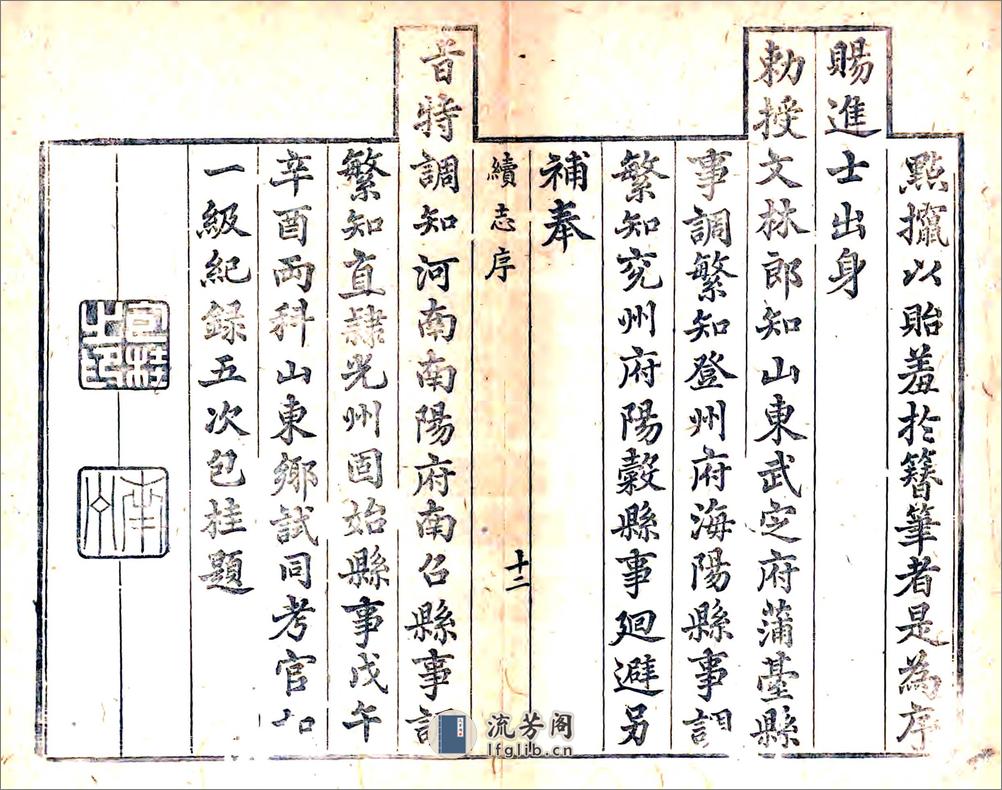 點攛以貽羞於簪筆者是為序
賜進士出身
勅授文林郎知山東武定府蒲臺縣
事調繁知登州府海陽縣事調
繁知兖州府陽穀縣事廻避另
補奉
續志序
十二
旨特調知河南南陽府南召縣事調
繁知直隸光州固始縣事戊午
辛酉兩科山東鄉試同考官加
一級紀録五次包桂題
流芳阁
lfglib.cn